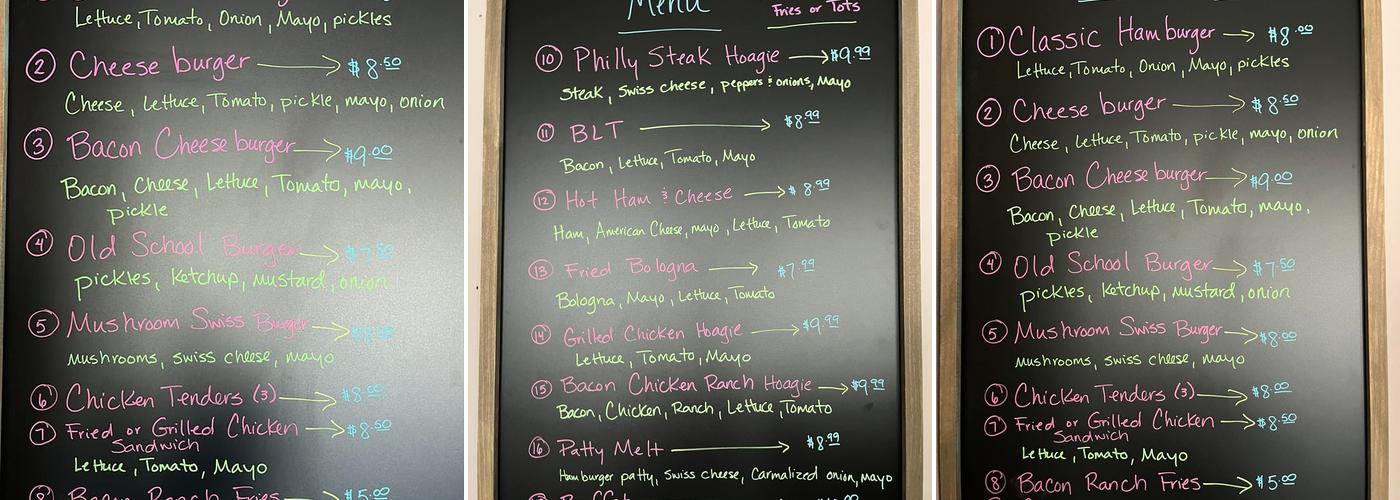 Lettuce, Tomato, Onion, Mayo, pickles
② Cheese burger → $8.50
Cheese, Lettuce, Tomato, pickle, mayo, onion
③ Bacon Cheese burger → $9.00
Bacon, Cheese, Lettuce, Tomato, mayo,
pickle
④ Old School Burger → $7.50
pickles, Ketchup, mustard, onion
⑤ Mushroom Swiss Burger →
mushrooms, swiss cheese, mayo
⑥ Chicken Tenders (3) → $8.00
⑦ Fried or Grilled Chicken → $8.50
Sandwich
Lettuce, Tomato, Mayo
⑧ Bacon Ranch Fries → $5.00
Menu
Fries or Tots
⑩ Philly Steak Hoagie → $9.99
Steak, Swiss cheese, peppers & onions, Mayo
⑪ BLT → $8.99
Bacon, Lettuce, Tomato, Mayo
⑫ Hot Ham & Cheese → $8.99
Ham, American Cheese, mayo, Lettuce, Tomato
⑬ Fried Bologna → $7.99
Bologna, Mayo, Lettuce, Tomato
⑭ Grilled Chicken Hoagie → $9.99
Lettuce, Tomato, Mayo
⑮ Bacon Chicken Ranch Hoagie → $9.99
Bacon, Chicken, Ranch, Lettuce, Tomato
⑯ Patty Melt → $8.99
Hamburger patty, Swiss cheese, Carmalized onion, mayo
① Classic Hamburger → $8.00
Lettuce, Tomato, Onion, Mayo, pickles
② Cheese burger → $8.50
Cheese, Lettuce, Tomato, pickle, mayo, onion
③ Bacon Cheese burger → $9.00
Bacon, Cheese, Lettuce, Tomato, mayo,
pickle
④ Old School Burger → $7.50
pickles, Ketchup, mustard, onion
⑤ Mushroom Swiss Burger → $8.00
mushrooms, swiss cheese, mayo
⑥ Chicken Tenders (3) → $8.00
⑦ Fried or Grilled Chicken → $8.50
Sandwich
Lettuce, Tomato, Mayo
⑧ Bacon Ranch Fries → $5.00